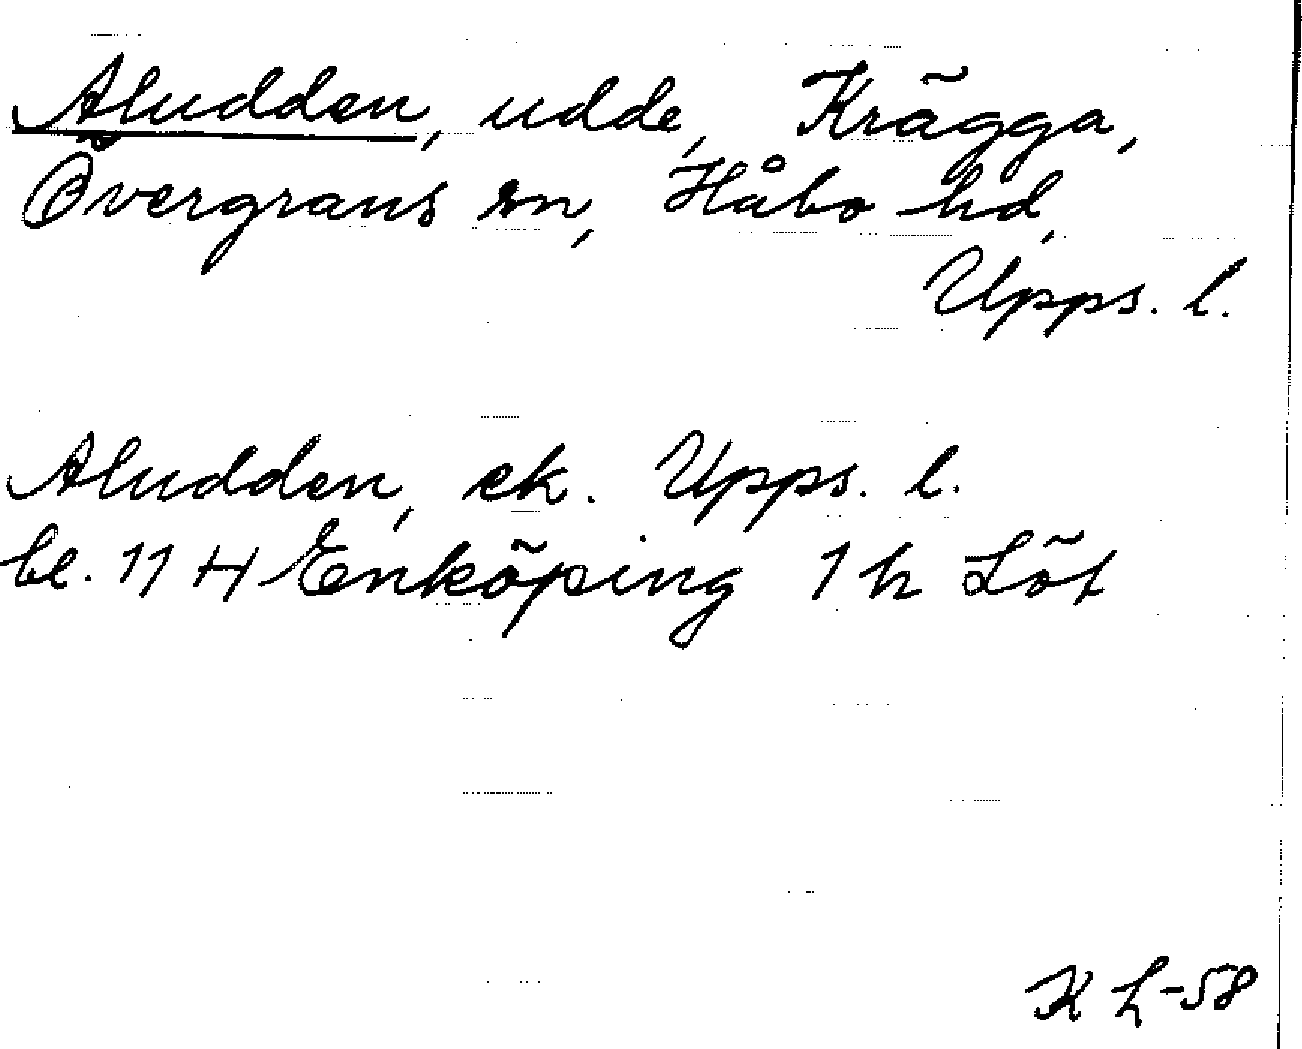 Aludden, udde, Krägga,
Övergrans sn, Håbo hd,
Upps. l.
Aludden, ek. Upps. l.
bl. 11 H Enköping 1 h Löt
K L-58